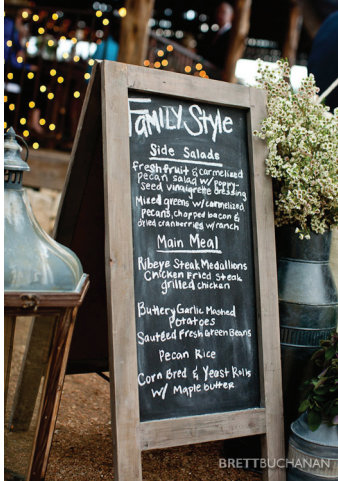 FAMILY Style
Side Salads
fresh fruit & carmelized
pecan salad w/ poppy
seed vinaigrette dressing
Mixed greens w/ carmelized
pecans, chopped bacon &
dried cranberries w/ ranch
Main Meal
Ribeye Steak Medallions
Chicken Fried Steak
grilled chicken
Buttery Garlic Mashed
Potatoes
Sautéed Fresh Green Beans
Pecan Rice
Corn Bred & Yeast Rolls
w/ Maple butter
BRETTBUCHANAN